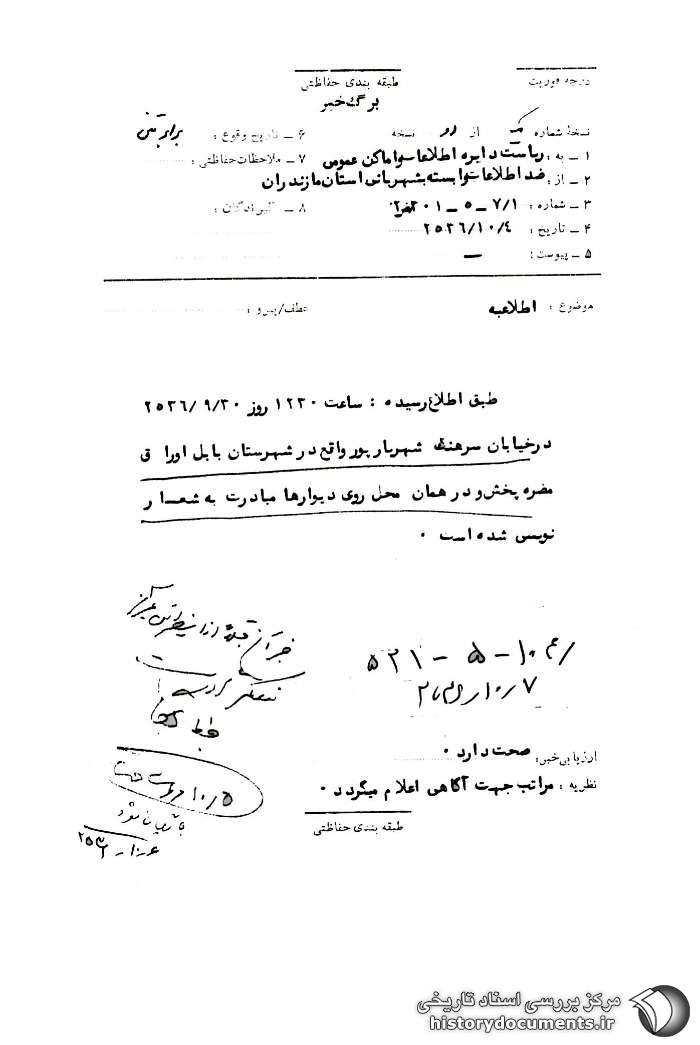 درجه فوریت
طبقه بندی حفاظتی
برگ خبر
نسخهٔ شماره یک از دو نسخه
۱ ـ به: ریاست دایره اطلاعات و اماکن عمومی
۲ ـ از: ضد اطلاعات وابسته بشهربانی استان مازندران
۳ ـ شماره: ۷/۱ ـ ۵ ـ ۲۰۱
۴ ـ تاریخ: ۲۵۳۶/۱۰/۴
۵ ـ پیوست: ـ
۶ ـ تاریخ وقوع: برابر متن
۷ ـ ملاحظات حفاظتی:
۸ ـ گیرندگان:
موضوع: اطلاعیه
عطف/پیرو:
طبق اطلاع رسیده: ساعت ۱۲۳۰ روز ۲۵۳۶/۹/۳۰
در خیابان سرهنگ شهریارپور واقع در شهرستان بابل اوراق
مضره پخش و در همان محل روی دیوارها مبادرت به شعار
نویسی شده است.
خبر آن قبلاً از این طریق به مرکز
منعکس گردیده است
۵۲۱ ـ ۵ ـ ۱۰۴
ارزیابی خبر: صحت دارد.
نظریه: مراتب جهت آگاهی اعلام میگردد.
طبقه بندی حفاظتی
مرکز بررسی اسناد تاریخی
historydocuments.ir